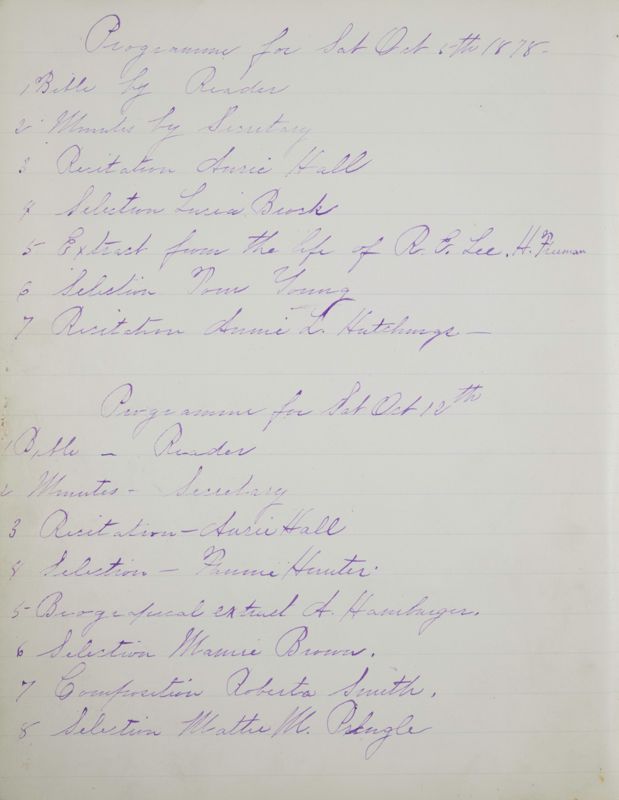 Programme for Sat Oct 5th 1878-
1 Bible by Reader
2 Minutes by Secretary
3 Recitation Ausie Hall
4 Selection Lucia Brock
5 Extract from the life of R. E. Lee. H. Freeman
6 Selection Young
7 Recitation Annie L. Hutchings -
Programme for Sat Oct 12th
1 Bible - Reader
2 Minutes - Secretary
3 Recitation - Ausie Hall
4 Selection - Fannie Hunter.
5 Biographical extract A. Hamburger.
6 Selection Mamie Brown.
7 Composition Roberta Smith.
8 Selection Mattie M. Pringle